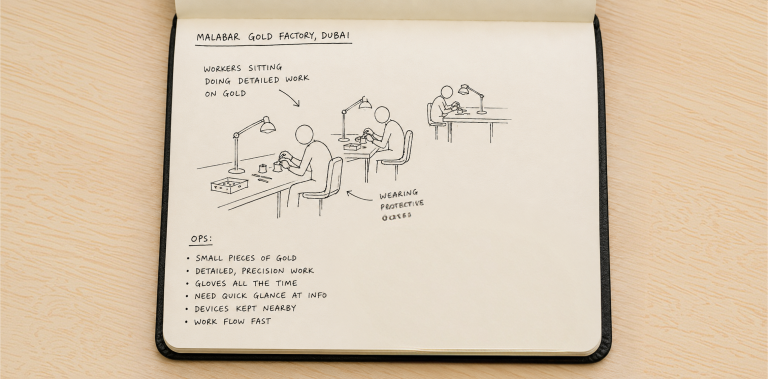 MALABAR GOLD FACTORY, DUBAI
WORKERS SITTING
DOING DETAILED WORK
ON GOLD
WEARING
PROTECTIVE
OPS:
• SMALL PIECES OF GOLD
• DETAILED, PRECISION WORK
• GLOVES ALL THE TIME
• NEED QUICK GLANCE AT INFO
• DEVICES KEPT NEARBY
• WORK FLOW FAST